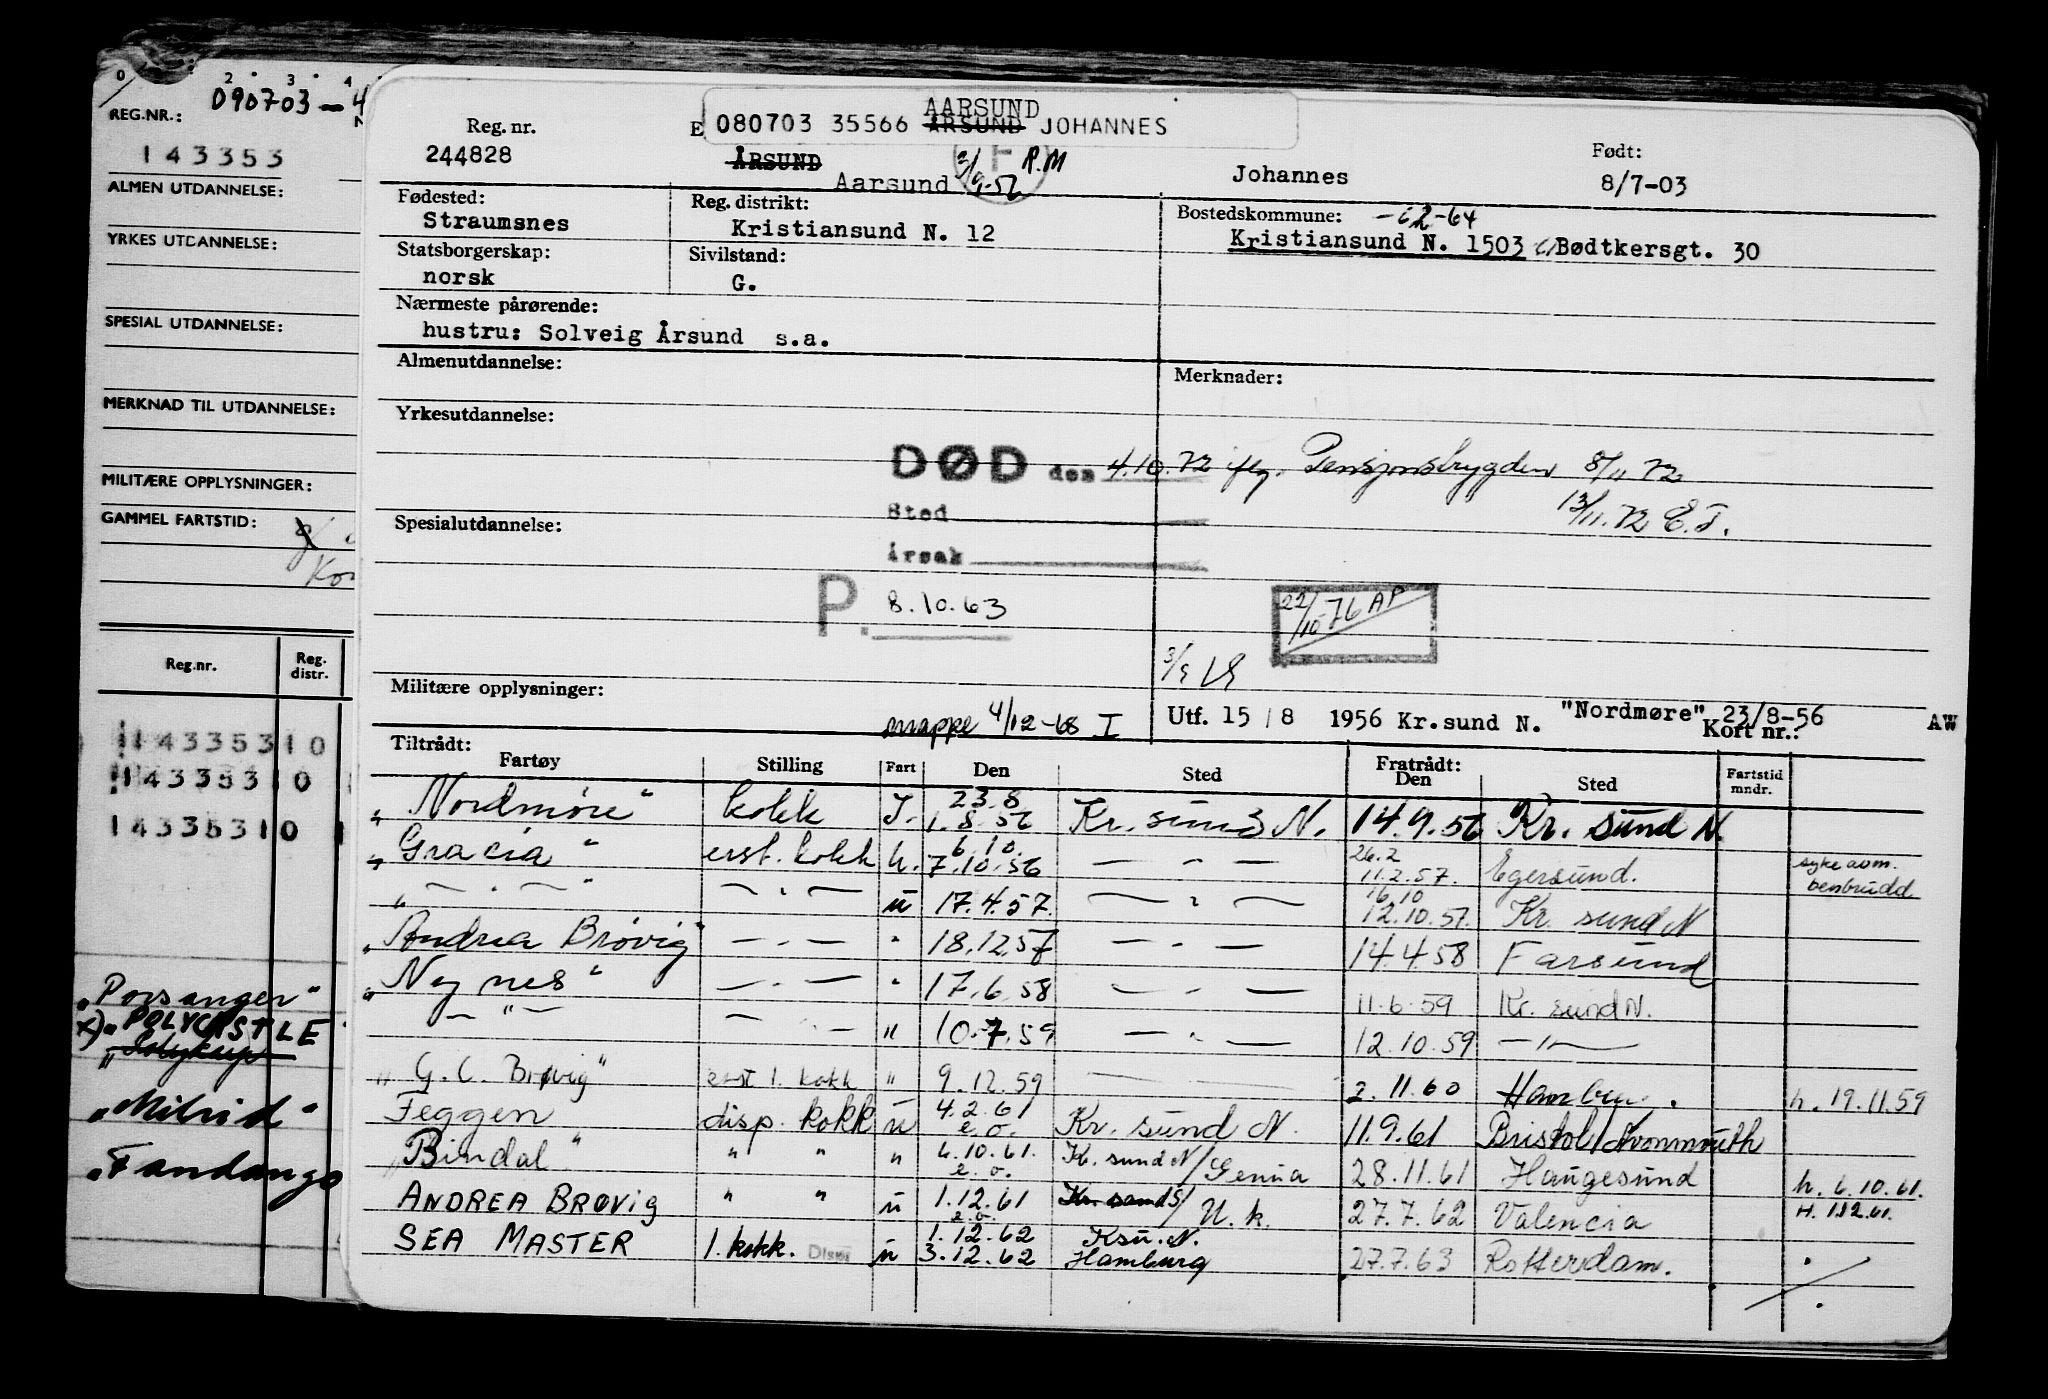 0 2 3 4
090703 - 4
REG.NR.:
143353
ALMEN UTDANNELSE:
YRKES UTDANNELSE:
SPESIAL UTDANNELSE:
MERKNAD TIL UTDANNELSE:
MILITÆRE OPPLYSNINGER:
GAMMEL FARTSTID:
Reg.nr. Reg. distr.
143353 10
143353 10
143353 10
"Porsanger"
x) "POLYCASTLE
"Mibrid"
"Fandango
AARSUND
Reg. nr. E 080703 35566 ÅRSUND JOHANNES
244828 ÅRSUND
Aarsund 3/9-56 R.M Johannes
Født:
8/7-03
Fødested:
Straumsnes
Reg. distrikt:
Kristiansund N. 12
Bostedskommune: -12-64
Kristiansund N. 1503 Bødtkersgt. 30
Statsborgerskap:
norsk
Sivilstand:
G.
Nærmeste pårørende:
hustru: Solveig Årsund s.a.
Almenutdannelse:
Merknader:
Yrkesutdannelse:
DØD den 4.10.72 iflg. Pensjonstrygden 8/11 72
13/11.72 E.T.
Sted
Spesialutdannelse:
årsak
P. 8.10.63
22/10-76 AP
Militære opplysninger:
mappe 4/12-68 I
Utf. 15 / 8 1956 Kr.sund N. "Nordmøre" 23/8-56 AW
Kort nr.:
Tiltrådt: Fratrådt:
Fartøy Stilling Fart Den Sted Den Sted Fartstid mndr.
23.8
"Nordmøre" kokk I. 1.8.56 Kr. sund N. 14.9.56 Kr. sund N.
6.10. 26.2
"Gracia" erst. kokk u. 7.10.56 — " — 11.2.57. Egersund. syke avm. benbrudd
16.10
" — " — " — " — u 17.4.57. — " — 12.10.57. Kr. sund N
"Andrea Brøvig" — " — " 18.12.57 — " — 14.4.58 Farsund
"Ny nes" — " — " 17.6.58 — " — 11.6.59 Kr. sund N.
— " — — " — " 10.7.59 — " — 12.10.59 — " —
"G. C. Brøvig" erst 1. kokk " 9.12.59 — 2.11.60 Hamburg. h. 19.11.59
Feggen disp. kokk u 4.2.61 e.o. Kr. sund N. 11.9.61 Bristol/Avonmouth
"Bindal" " " " 6.10.61. e.o. Kr. sund N/Genua 28.11.61 Haugesund h. 6.10.61.
ANDREA BRØVIG " " u 1.12.61 e.o. Kr. sand S/U.k. 27.7.62 Valencia H. 1.12.61.
1.12.62 Ksu. N.
SEA MASTER 1. kokk. Disp. u 3.12.62 Hamburg 27.7.63 Rotterdam.